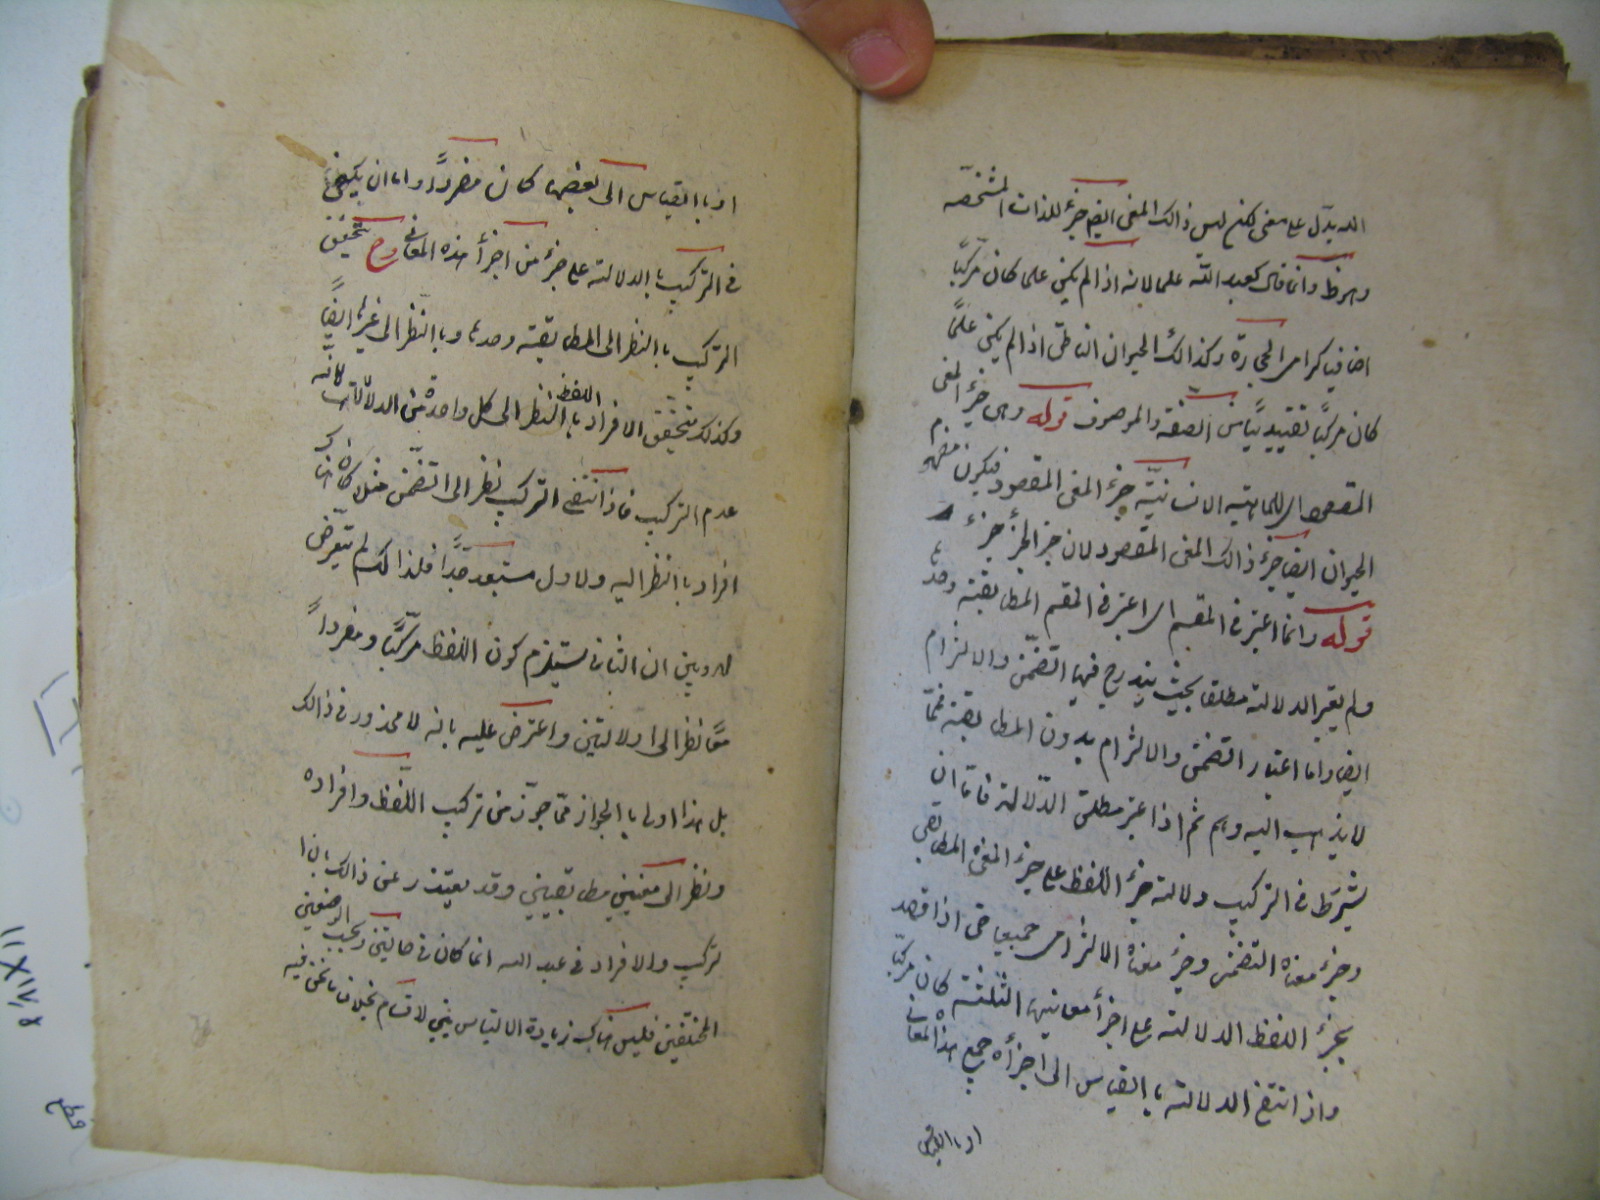 الله يدل على معنى لكنه ليس ذالك المعنى ايضا جزء للذات المشخصة
وهو ظ وانما قال كعبد الله علما لانه اذا لم يكن علما كان مركبا
اضافيا كرامي الحجارة وكذالك الحيوان الناطق اذا لم يكن علما
كان مركبا تقييديا من الصفة والموصوف قوله وهى جزء المعنى
المقصود اى الماهية الانسانية جزء المعنى المقصود فيكون مفهوم
الحيوان ايضا جزء ذالك المعنى المقصود لان جزء الجزء جزء
قوله وانما اعتبر فى المقسم اى اعتبر فى المقسم المطابقة وحدها
ولم يعتبر الدلالة مطلقا بحيث يندرج فيها التضمن والالتزام
ايضا واما اعتبار التضمن والالتزام بدون المطابقة فمما
لا يذهب اليه وهم ثم اذا اعتبر مطلق الدلالة فاما ان
يشترط فى التركيب دلالة جزء اللفظ على جزء المعنى المطابقى
وجزء معناه التضمنى وجزء معناه الالتزامى جميعا حتى اذا قصد
بجزء اللفظ الدلالة على اجزأ معانيها الثلثة كان مركبا
واذا انتفى الدلالة باالقياس الى اجزأه جميع هذه المعانى
او باالقياس
او باالقياس الى بعضها كان مفردا واما ان يكتفى
فى التركيب باالدلالة على جزء من اجزأ هذه المعانى وح تحقق
التركيب باالنظر الى المطابقة وحدها وباالنظر الى غيرها ايضا
وكذلك يتحقق الافراد اللفظ باالنظر الى كل واحدة من الدلالات لانه
عدم التركيب فاذا انتفى التركيب نظر الى التضمن مثلا كان هناك
افراد باالنظر اليه ولاول مستبعد جدا فلذالك لم يتعرض
له وبين ان الثانى يستلزم كون اللفظ مركبا ومفردا
معا نظر الى دلالتين واعترض عليه بانه لا محذور فى ذالك
بل هذا اولى باالجواز مما جوز من تركيب اللفظ وافراده
ونظر الى معنيين مطابقيين وقد يعتذر عن ذالك بان
تركيب والافراد فى عبد الله انما كان فى حالتين وبحسب الوضعين
المختلفين فليس هناك زيادة الالتباس بين لاقسام بخلاف ما نحن فيه